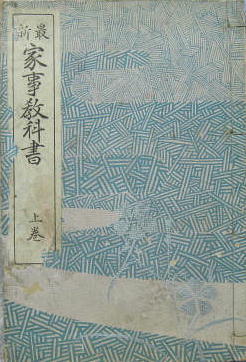 最新
家事教科書
上巻